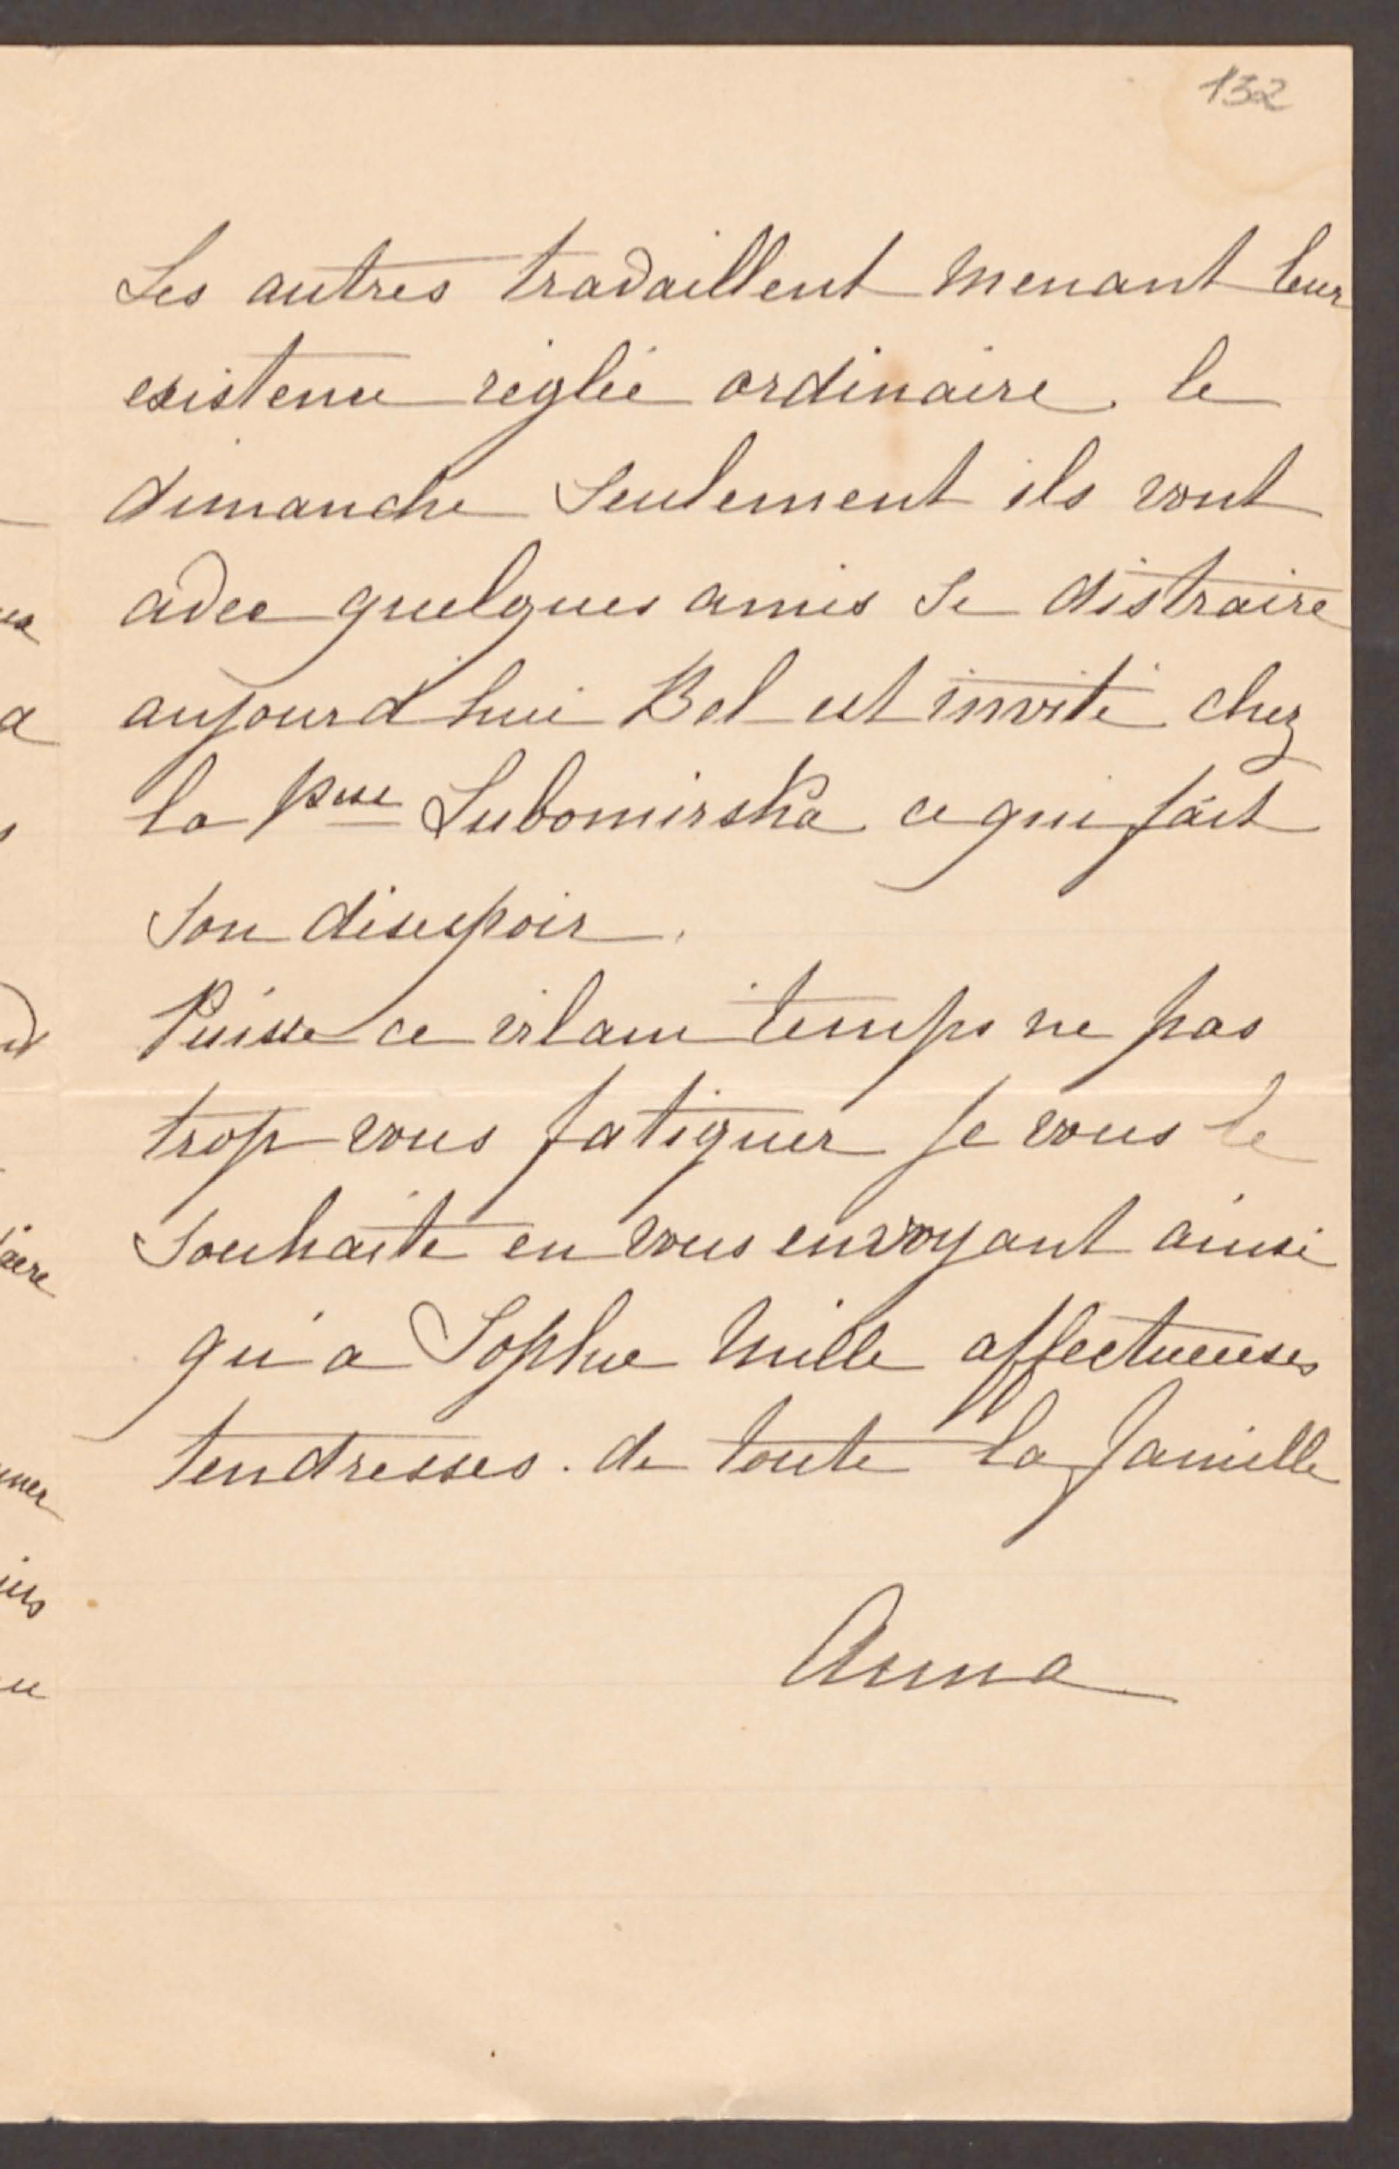 132
Les autres travaillent menant leur
existence réglée ordinaire. le
dimanche seulement ils vont
avec quelques amis se distraire
aujourd'hui Bel est invité chez
la Psse Lubomirska ce qui fait
son désespoir.
Puisse ce vilain temps ne pas
trop vous fatiguer je vous le
souhaite en vous envoyant ainsi
qu'a Sophie mille affectueuses
tendresses. de toute la famille
Anna